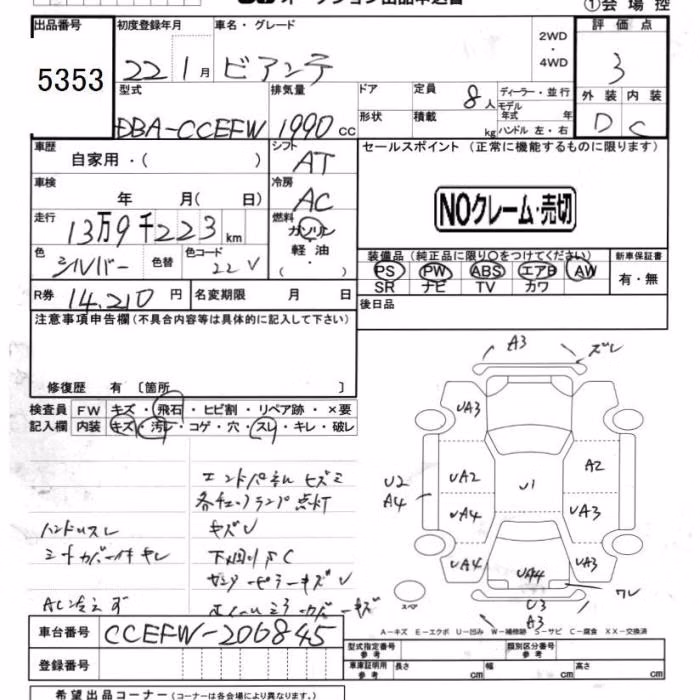 オークション出品申込書
①会場控
出品番号 初度登録年月 車名・グレード 2WD・4WD 評価点
5353 22 1月 ビアンテ 3
型式 排気量 ドア 定員 8人 ディーラー・並行 外装 内装
DBA-CCEFW 1990 cc 形状 積載 kg モデル年式 年 ハンドル 左・右 D C
車歴 シフト セールスポイント (正常に機能するものに限ります)
自家用・( ) AT
車検 冷房
年 月( 日) AC NOクレーム・売切
走行 燃料
13万9千223km ガソリン
軽油
・
( )
色 色替 色コード 装備品 (純正品に限り○をつけてください) 新車保証書
シルバー 22V PS PW ABS エアB AW 有・無
SR ナビ TV カワ
R券 14,210円 名変期限 月 日 後日品
注意事項申告欄(不具合内容等は具体的に記入して下さい)
修復歴 有〔箇所 〕
検査員 FW キズ・飛石・ヒビ割・リペア跡・×要
記入欄 内装 キズ・汚レ・コゲ・穴・スレ・キレ・破レ
エンドパネル ヒズミ
各チェックランプ点灯
ハンドルスレ キズU
シートカバー付キレ 下回りSC
キズU
AC冷えず カバーキズ
A3 ズレ
UA3
UA2 U1 A2
U2
A4
UA4 UA3
UA4 UA4 UA3
ワレ
スペア U3
A3
A-キズ E-エクボ U-凹み W-補修跡 S-サビ C-腐食 XX-交換済
車台番号 CCEFW-206845
型式指定番号 参考 類別区分番号 参考
登録番号
車庫証明用 参考 長さ cm 幅 cm 高さ cm
希望出品コーナー (コーナーは各会場により異なります。)